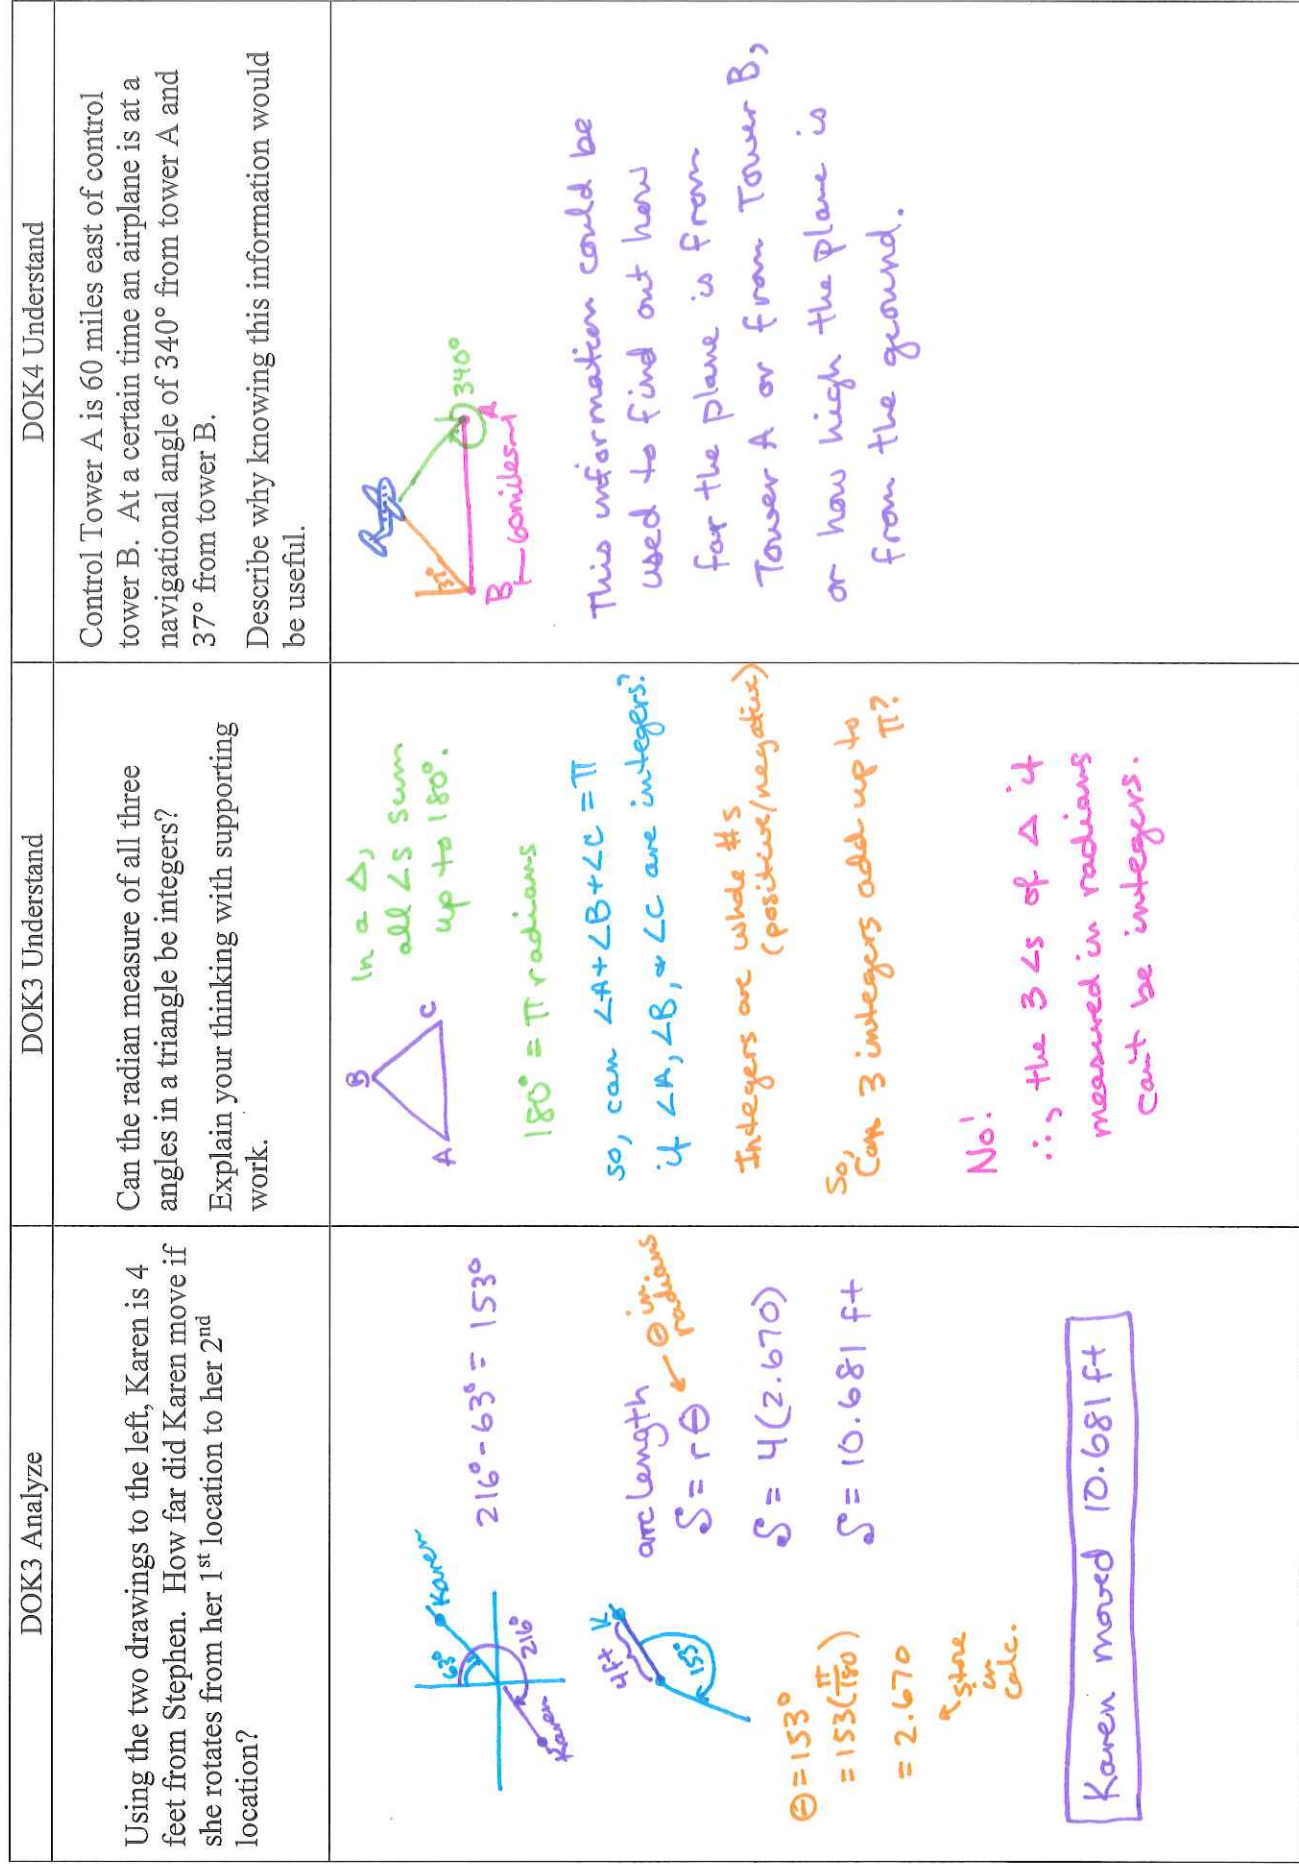 DOK3 Analyze
Using the two drawings to the left, Karen is 4
feet from Stephen. How far did Karen move if
she rotates from her 1st location to her 2nd
location?
63°
Karen
216°
Karen
216° - 63° = 153°
4ft
K
153°
arc length
S = rθ ← θ in radians
S = 4(2.670)
S = 10.681 ft
θ = 153°
= 153(π/180)
= 2.670
store
in
calc.
Karen moved 10.681 ft
DOK3 Understand
Can the radian measure of all three
angles in a triangle be integers?
Explain your thinking with supporting
work.
A
B
C
In a △,
all ∠s sum
up to 180°.
180° = π radians
so, can ∠A + ∠B + ∠C = π
if ∠A, ∠B, + ∠C are integers?
Integers are whole #s
(positive/negative)
So,
Can 3 integers add up to
π?
No!
∴, the 3 ∠s of △ if
measured in radians
can't be integers.
DOK4 Understand
Control Tower A is 60 miles east of control
tower B. At a certain time an airplane is at a
navigational angle of 340° from tower A and
37° from tower B.
Describe why knowing this information would
be useful.
37°
340°
B
A
60miles
This information could be
used to find out how
far the plane is from
Tower A or from Tower B,
or how high the plane is
from the ground.